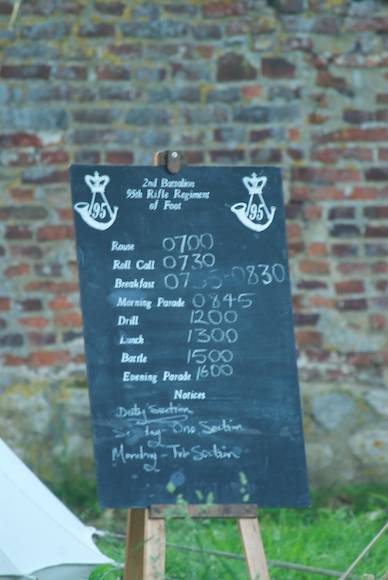 2nd Battalion
95th Rifle Regiment
of Foot
95
95
Rouse 0700
Roll Call 0730
Breakfast 0735-0830
Morning Parade 0845
Drill 1200
Lunch 1300
Battle 1500
Evening Parade 1600
Notices
Duty Section
Sunday - One Section
Monday - Two Section